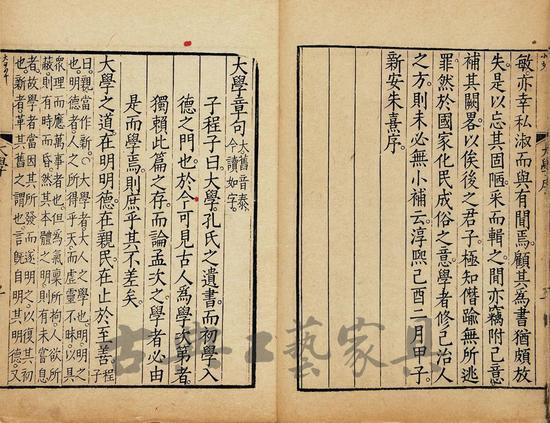 敏亦幸私淑而與有聞焉。顧其爲書猶頗放
失。是以忘其固陋。采而輯之。間亦竊附己意。
補其闕畧。以俟後之君子。極知僭踰無所逃
罪。然於國家化民成俗之意。學者修己治人
之方。則未必無小補云。淳熙己酉二月甲子。
新安朱熹序。
大學章句
大舊音泰。
今讀如字。
子程子曰。大學。孔氏之遺書。而初學入
德之門也。於今可見古人爲學次第者。
獨賴此篇之存。而論孟次之。學者必由
是而學焉。則庶乎其不差矣。
大學之道。在明明德。在親民。在止於至善。
程子
曰。親當作新。○大學者。大人之學也。明。明之
也。明德者。人之所得乎天。而虛靈不昧。以具
衆理而應萬事者也。但爲氣稟所拘。人欲所
蔽。則有時而昏。然其本體之明。則有未嘗息
者。故學者當因其所發而遂明之。以復其初
也。新者。革其舊之謂也。言旣自明其明德。又
大學序
大學
古典工藝家具